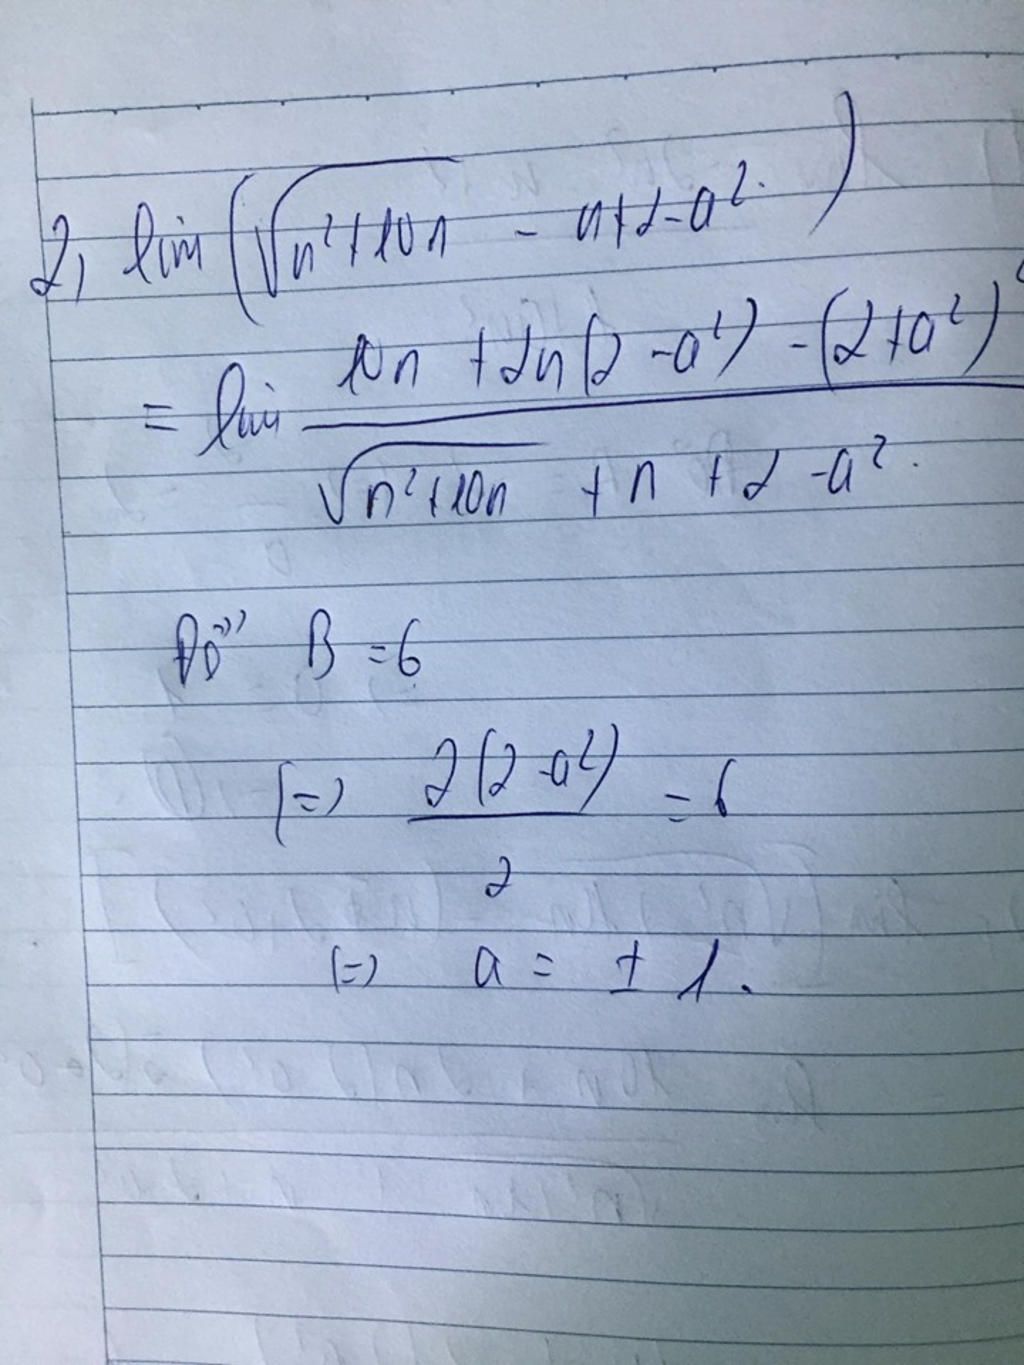 2, lim (√n²+10n - n+2-a².)
= lim 10n +2n(2-a²) -(2+a²)² / √n²+10n +n +2 -a².
Để B = 6
(=) 2(2-a²) / 2 = 6
(=) a = ± 1.